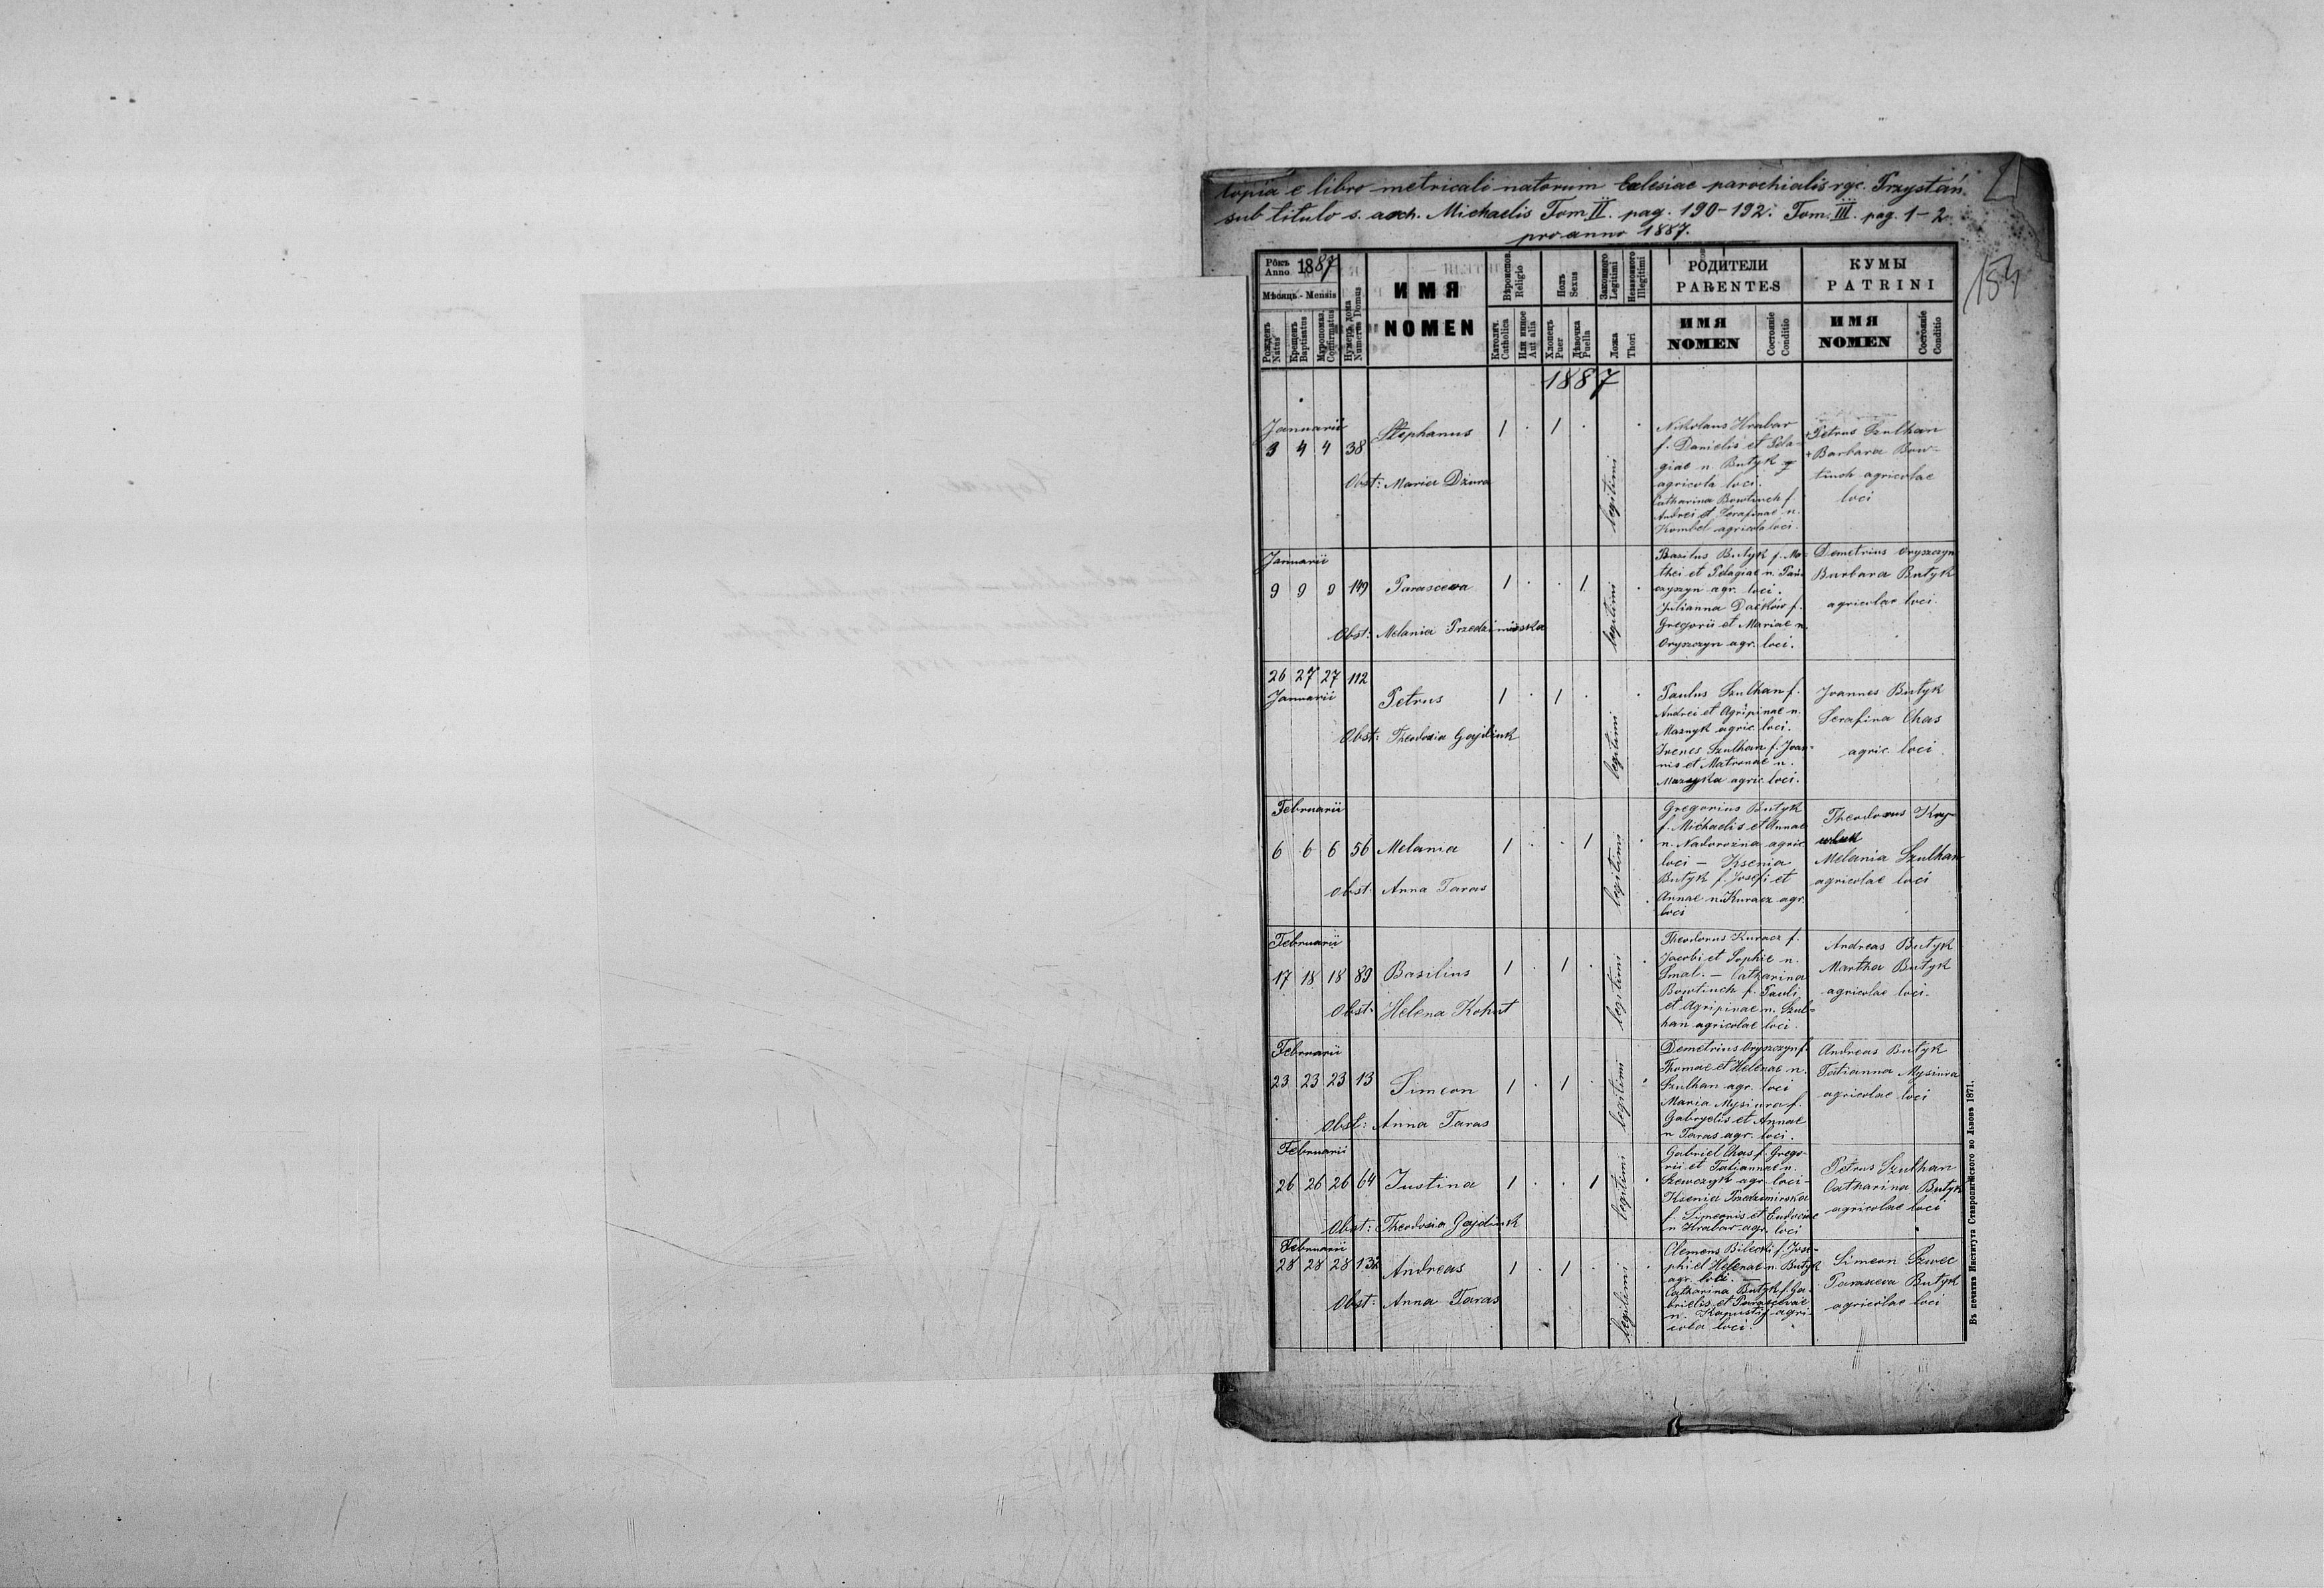 Copia e libro metricali natorum Eclesiae parochialis rgc. Przystań
sub titulo s. arch. Michaelis Tom II. pag. 190-192. Tom. III. pag. 1-2
pro anno 1887.
154
Рôкъ Anno 1887
Мѣсяць - Mensis
Рожденъ Natus
Крещенъ Baptisatus
Муропомаз. Confirmatus
Нумеръ дома Numerus Domus
ИМЯ
NOMEN
Вѣроиспов. Religio
Католич. Catholica
Или инное Aut alia
Полъ Sexus
Хлопець Puer
Дѣвочка Puella
Законного Legitimi
Незаконного Illegitimi
Ложа
Thori
РОДИТЕЛИ
PARENTES
ИМЯ
NOMEN
Состояніе Conditio
КУМЫ
PATRINI
ИМЯ
NOMEN
Состояніе Conditio
1887
Januarii
3 4 4 38
Stephanus
1 . 1 .
Obst: Maria Dziura
legitimi
Nikolaus Hrabar
f. Danielis et Pela-
giae n. Butyk
agricola loci.
Catharina Bowtinch f.
Andrei et Serafinae n.
Kombel agricola loci.
+ Petrus Szulhan
+ Barbara Bow-
tinch agricolae
loci
Januarii
9 9 9 149 Parasceva 1 . . 1
Obst: Melania Przedzimirska
legitimi
Basilus Butyk f. Ma-
thei et Pelagiae n. Pań-
czyszyn agr. loci.
Julianna Daćków f.
Gregorii et Mariae n.
Oryszczyn agr. loci.
Demetrius Oryszczyn
Barbara Butyk
agricolae loci.
26 27 27 112
Januarii
Petrus 1 . 1 .
Obst: Theodosia Gajdiuk
legitimi
Paulus Szulhan f.
Andrei et Agripinae n.
Maznyk agric. loci.
Irenes Szulhan f. Joan-
nis et Matronae n.
agric. loci.
Joannes Butyk
Serafina Chas
agric. loci
Februarii
6 6 6 56 Melania 1 . . 1
Obst. Anna Taras
legitimi
Gregorius Butyk
f. Michaelis et Annae
n. Nadorozna agric.
loci — Ksenia
Butyk f. Josefi et
Annae n. Kuracz agr.
loci
Theodorus
Melania Szulhan
agricolae loci
Februarii
17 18 18 89 Basilius 1 . 1 .
Obst. Helena Kohut
legitimi
Theodorus Kuracz f.
Jacobi et Sophie n.
Smal. — Catharina
Bowtinch f. Pauli
et Agripinae n. Szul-
han agricolae loci.
Andreas Butyk
Martha Butyk
agricolae loci.
Februarii
23 23 23 13 Simeon 1 . 1 .
Obst: Anna Taras
legitimi
Demetrius Oryszczyn f.
Thomae et Helenae n.
Szulhan agr. loci
Maria Mysiura f.
Gabryelis et Annae
n Taras agr. loci.
Andreas Butyk
Tatianna Mysiura
agricolae loci
Februarii
26 26 26 64 Justina 1 . . 1
Obst: Theodosia Gajdiuk
legitimi
Gabriel Chas f. Grego-
rii et Tatiannae n.
Szewczyk agr. loci -
Ksenia Przedzimirska
f. Simeonis et Eudociae
n Hrabar agr. loci
Petrus Szulhan
Catharina Butyk
agricolae loci
Februarii
28 28 28 132 Andreas 1 . 1 .
Obst: Anna Taras
legitimi
Clemens Bilecki f. Jose-
phi et Helenae n. Butyk
agr. loci. —
Catharina Butyk f. Ga-
brielis et Parascevae
n. Kapustij agri-
cola loci.
Simeon Szwec
Parasceva Butyk
agricolae loci
Въ печатнѣ Института Ставропигійского во Львовѣ 1871.